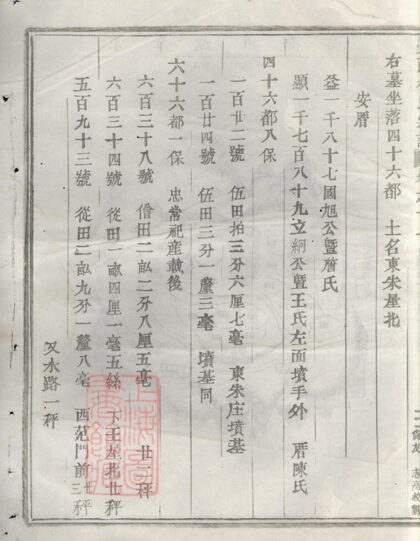 右墓坐落四十六都　土名東朱屋北
安厝
益一千八十七國旭公暨詹氏
顯一千七百八十九立綱公暨王氏左面墳手外　厝陳氏
四十六都八保
一百廿二號　伍田拍三分六厘七毫　東朱庄墳基
一百廿四號　伍田三分一釐三毫　墳基同
六十六都一保　忠常祀產載後
六百三十八號　僧田二畝二分八厘五毫　廿二秤
六百三十四號　從田一畝四厘一毫五絲　下王屋北廿秤
五百九十三號　從田二畝九分一釐八毫　西范門前廿三秤
又水路一秤
上海圖書館藏